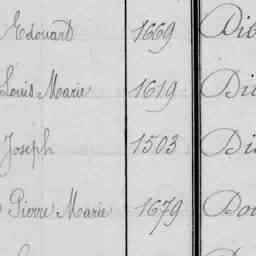 Edouard 1669 Dib
Louis Marie 1619 Di
Joseph 1503 Di
Pierre Marie 1679 Do